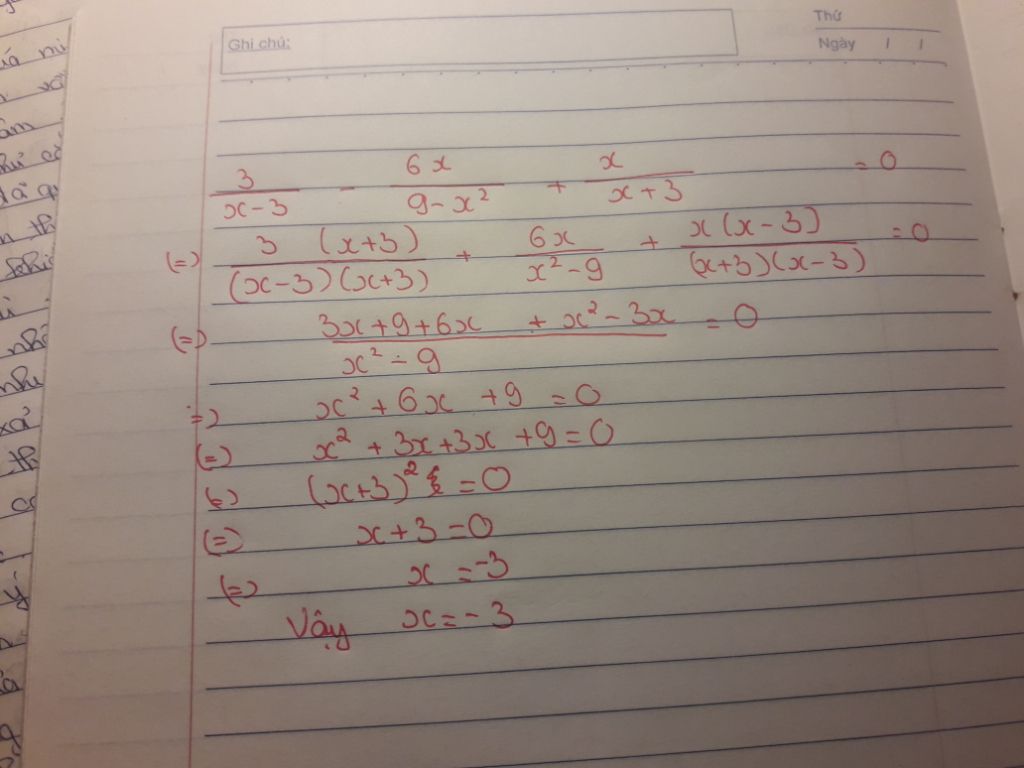 Thứ
Ghi chú:
Ngày / /
3/(x-3) - 6x/(9-x²) + x/(x+3) = 0
(=) 3(x+3)/((x-3)(x+3)) + 6x/(x²-9) + x(x-3)/((x+3)(x-3)) = 0
(=) (3x+9+6x + x²-3x)/(x²-9) = 0
=) x² + 6x + 9 = 0
(=) x² + 3x + 3x + 9 = 0
(=) (x+3)² = 0
(=) x + 3 = 0
(=) x = -3
Vậy x = -3